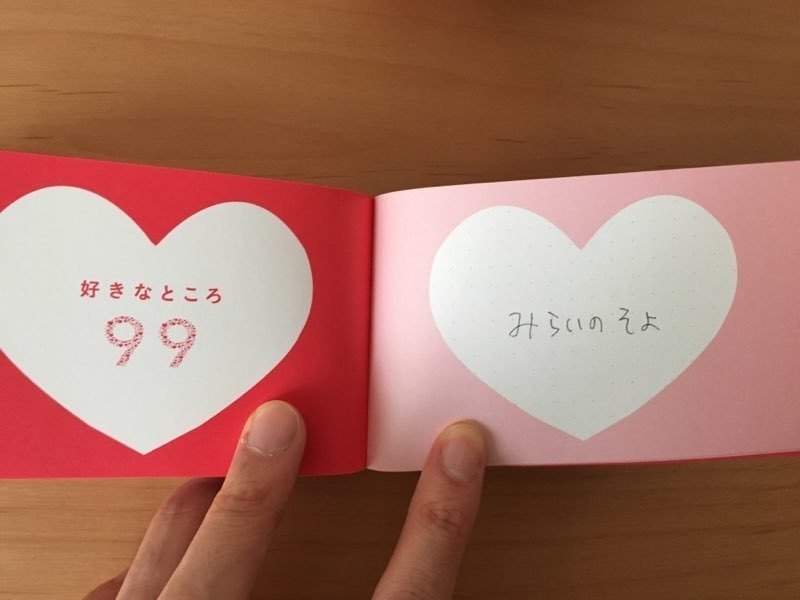 好きなところ
99
みらいのそよ